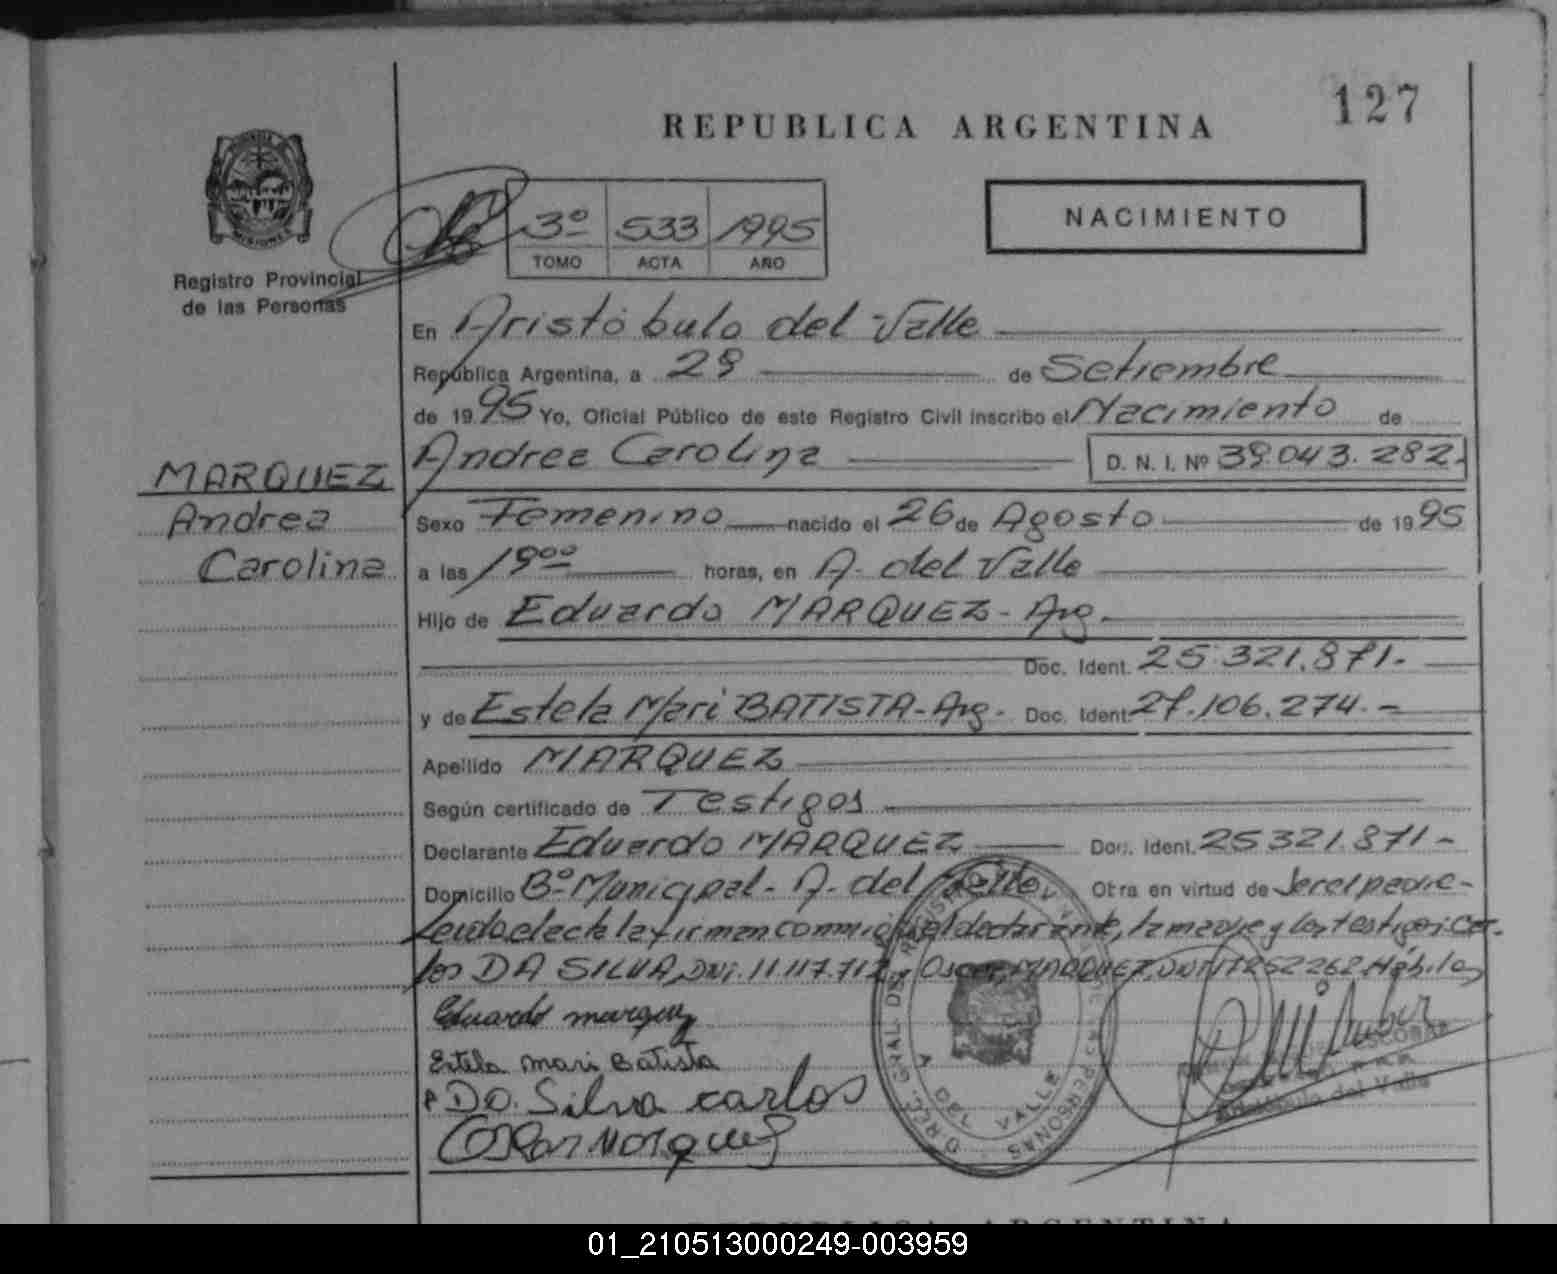 127
REPUBLICA ARGENTINA
MISIONES
Registro Provincial
de las Personas
3º 533 1995
TOMO ACTA AÑO
NACIMIENTO
En Aristóbulo del Valle
República Argentina, a 29 de Setiembre
de 1995 Yo, Oficial Público de este Registro Civil inscribo el Nacimiento de
Andrea Carolina D. N. I. Nº 39.043.282.
MARQUEZ
Andrea
Carolina
Sexo Femenino nacido el 26 de Agosto de 1995
a las 19⁰⁰ horas, en A. del Valle
Hijo de Eduardo MARQUEZ - Arg.
Doc. Ident. 25.321.871.-
y de Estela Mari BATISTA - Arg. Doc. Ident. 27.106.274.-
Apellido MARQUEZ
Según certificado de Testigos
Declarante Eduardo MARQUEZ Doc. Ident. 25.321.871-
Domicilio Bº Municipal - A. del Valle Otra en virtud de Ser el padre-
Leida el acta la firman conmigo el declarante, la madre y los testigos: Car-
los DA SILVA, DNI. 11.117.712 Oscar MARQUEZ, DNI 17252262 Hábiles
Eduardo marquez
Estela Mari Batista
Da Silva carlos
Oscar Marquez
A DEL VALLE
ESCOBAR
Aristóbulo del Valle
REPUBLICA ARGENTINA
01_210513000249-003959